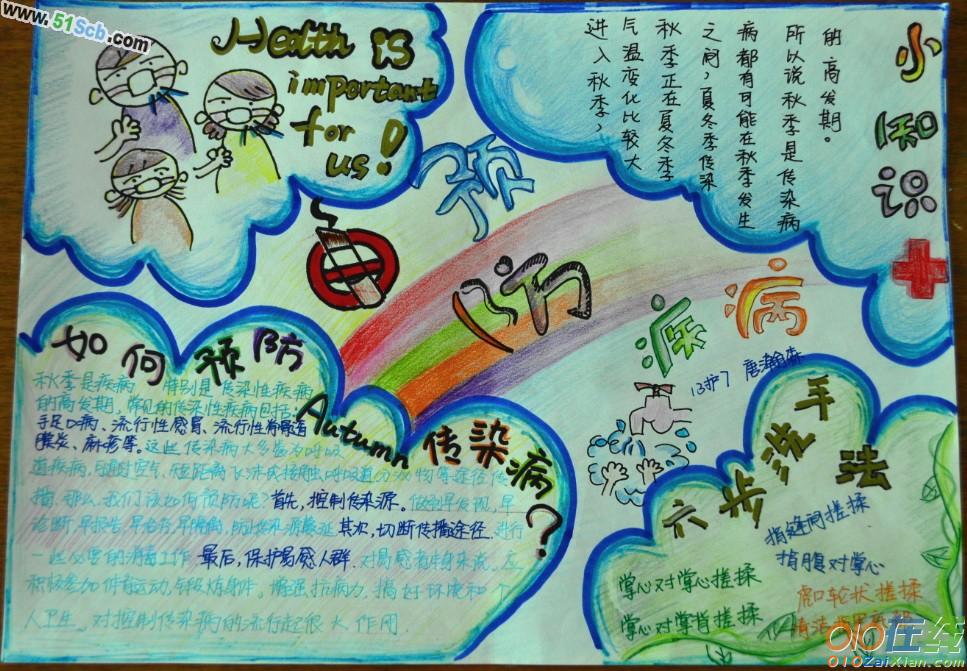 www.51Scb.com
Health is
important
for
us!
小知识
进入秋季，
气温变化比较大
秋季正在夏冬季
之间，夏冬季传染
病都有可能在秋季发生
所以说秋季是传染病
的高发期。
预防疾病
13护7 唐瀚森
如何预防
Autumn
传染病？
秋季是疾病 特别是传染性疾病
的高发期，常见的传染性疾病包括：
手足口病、流行性感冒、流行性脊髓
膜炎、麻疹等。这些传染病大多为呼吸
道疾病，
播，那么，我们该如何预防呢？首先，控制传染源。做到早发现，早
诊断，早报告，早治疗，早隔离，防止传染源蔓延 其次，切断传播途径，进行
一些必要的消毒工作 最后，保护易感人群。对易感者本身来说，应
积极参加体育运动，锻炼身体，增强抗病力，搞好环境和个
人卫生。对控制传染病的流行起很大作用
六步洗手法
掌心对掌心搓揉
掌心对掌背搓揉
指缝间搓揉
指腹对掌心
虎口轮状搓揉
010在线
010ZaiXian.com